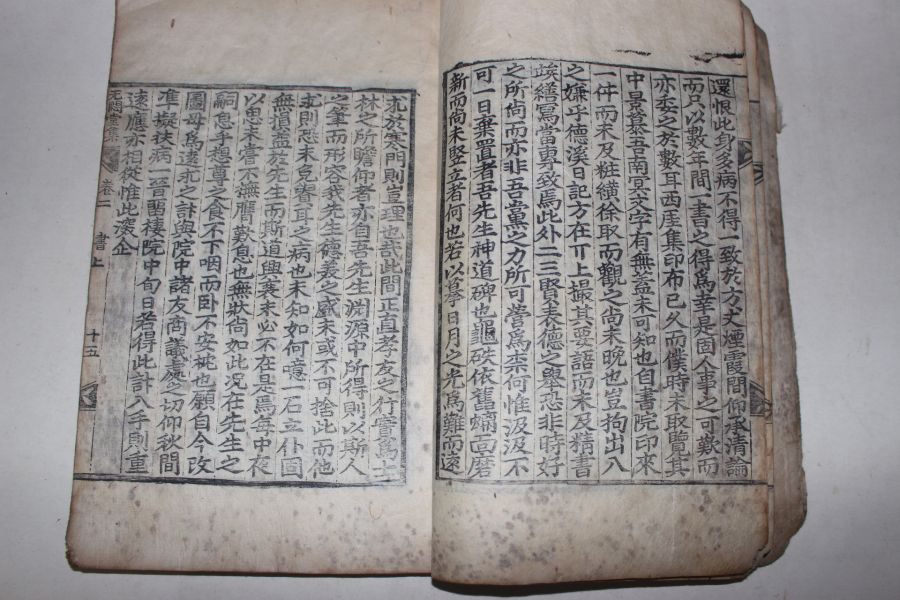 還恨此身多病不得一致於方丈煙霞間仰承清論
而只以數年間一書之得爲幸是固人事之可歎而
亦柰之於數耳西厓集印布已久而僕時未取覽其
中景慕吾南冥文字有無蓋未可知也自書院印來
一件而未及粧䌙徐取而觀之尚未晩也豈拘出入
之嫌乎德溪日記方在丌上撮其要語而未及精書
竣繕寫當專致爲此外二三賢表德之擧恐非時好
之所尚而亦非吾黨之力所可營爲柰何惟汲汲不
可一日棄置者吾先生神道碑也龜趺依舊蠣面磨
新而尚未竪立者何也若以摹日月之光爲難而遠
尤於寒門則豈理也哉此間正直孝友之行實爲士
林之所瞻仰者亦自吾先生淵源中所得則以斯人
之筆而形容我先生德義之盛未或不可捨此而他
求則恐未免聾耳之病也未知如何噫一石立仆固
無損益於先生而斯道興衰未必不在是焉每中夜
以思未嘗不撫膺歎息也無狀尚如此況在先生之
嗣息乎想尊之食不下咽而臥不安枕也願自今改
圖毋爲遠求之計與院中諸友商議處之切仰秋間
準擬扶病一晉留棲院中旬日若得此計入手則重
遠應亦相從惟此深企
无悶堂集 卷二 書上 十五